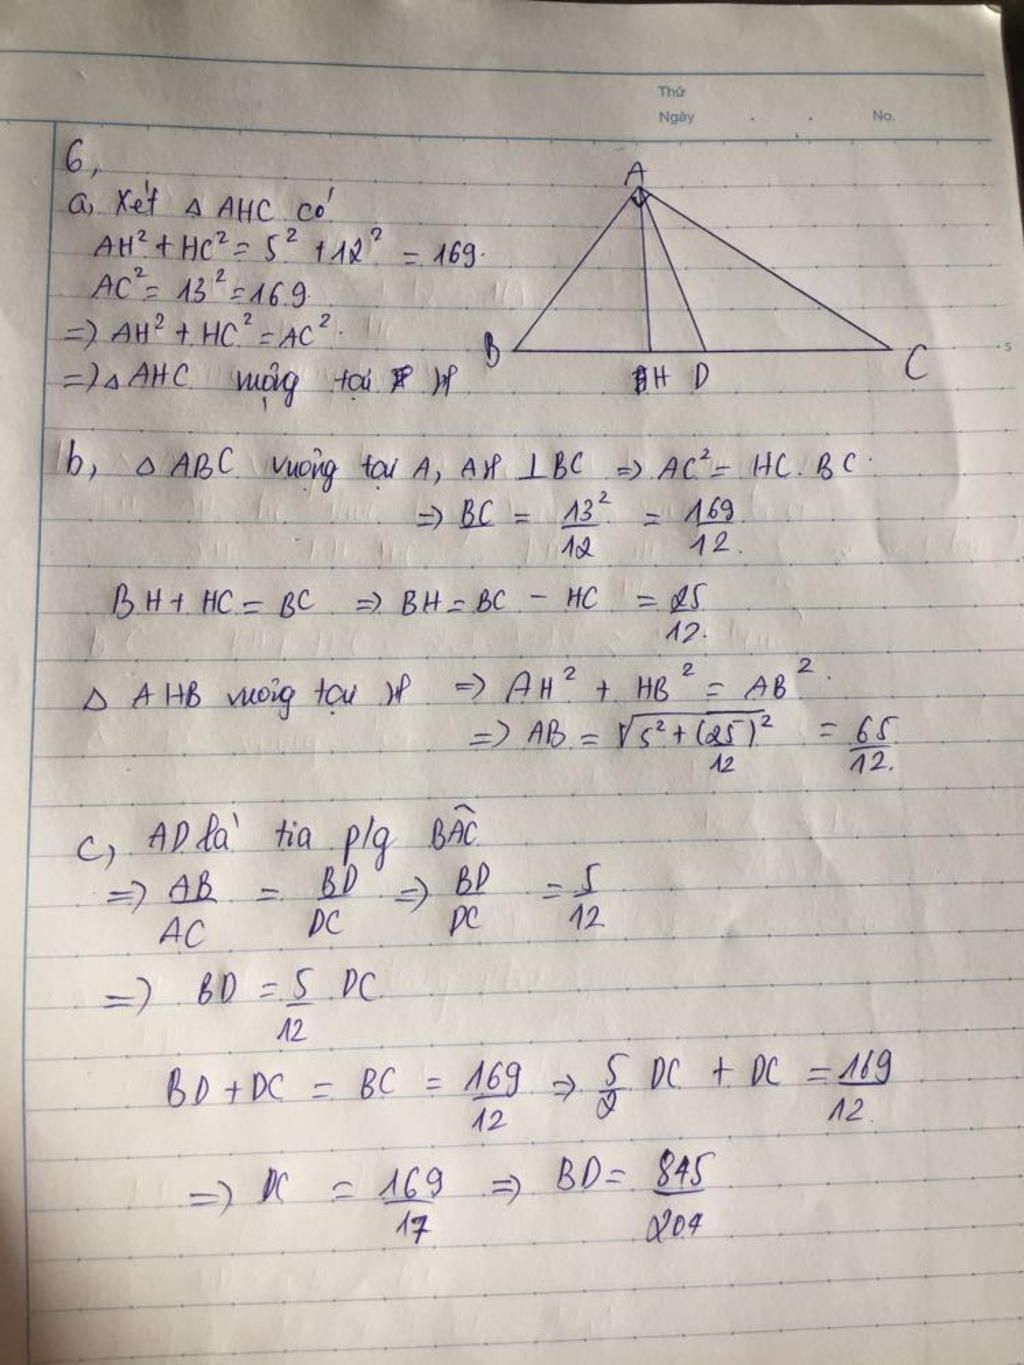 Thứ
Ngày . . No.
6,
A
a, Xét △ AHC có
AH² + HC² = 5² + 12² = 169.
AC² = 13² = 169
=> AH² + HC² = AC².
B H D C
5
=> △ AHC vuông tại H
b, △ ABC vuông tại A, AH ⊥ BC => AC² = HC. BC.
=> BC = 13²/12 = 169/12.
BH + HC = BC => BH = BC - HC = 25/12.
△ AHB vuông tại H => AH² + HB² = AB².
=> AB = √(5² + (25/12)²) = 65/12.
c, AD là tia p/g BÂC
=> AB/AC = BD/DC => BD/DC = 5/12
=> BD = 5/12 DC
BD + DC = BC = 169/12 => 5/2 DC + DC = 169/12.
=> DC = 169/17 => BD = 845/204